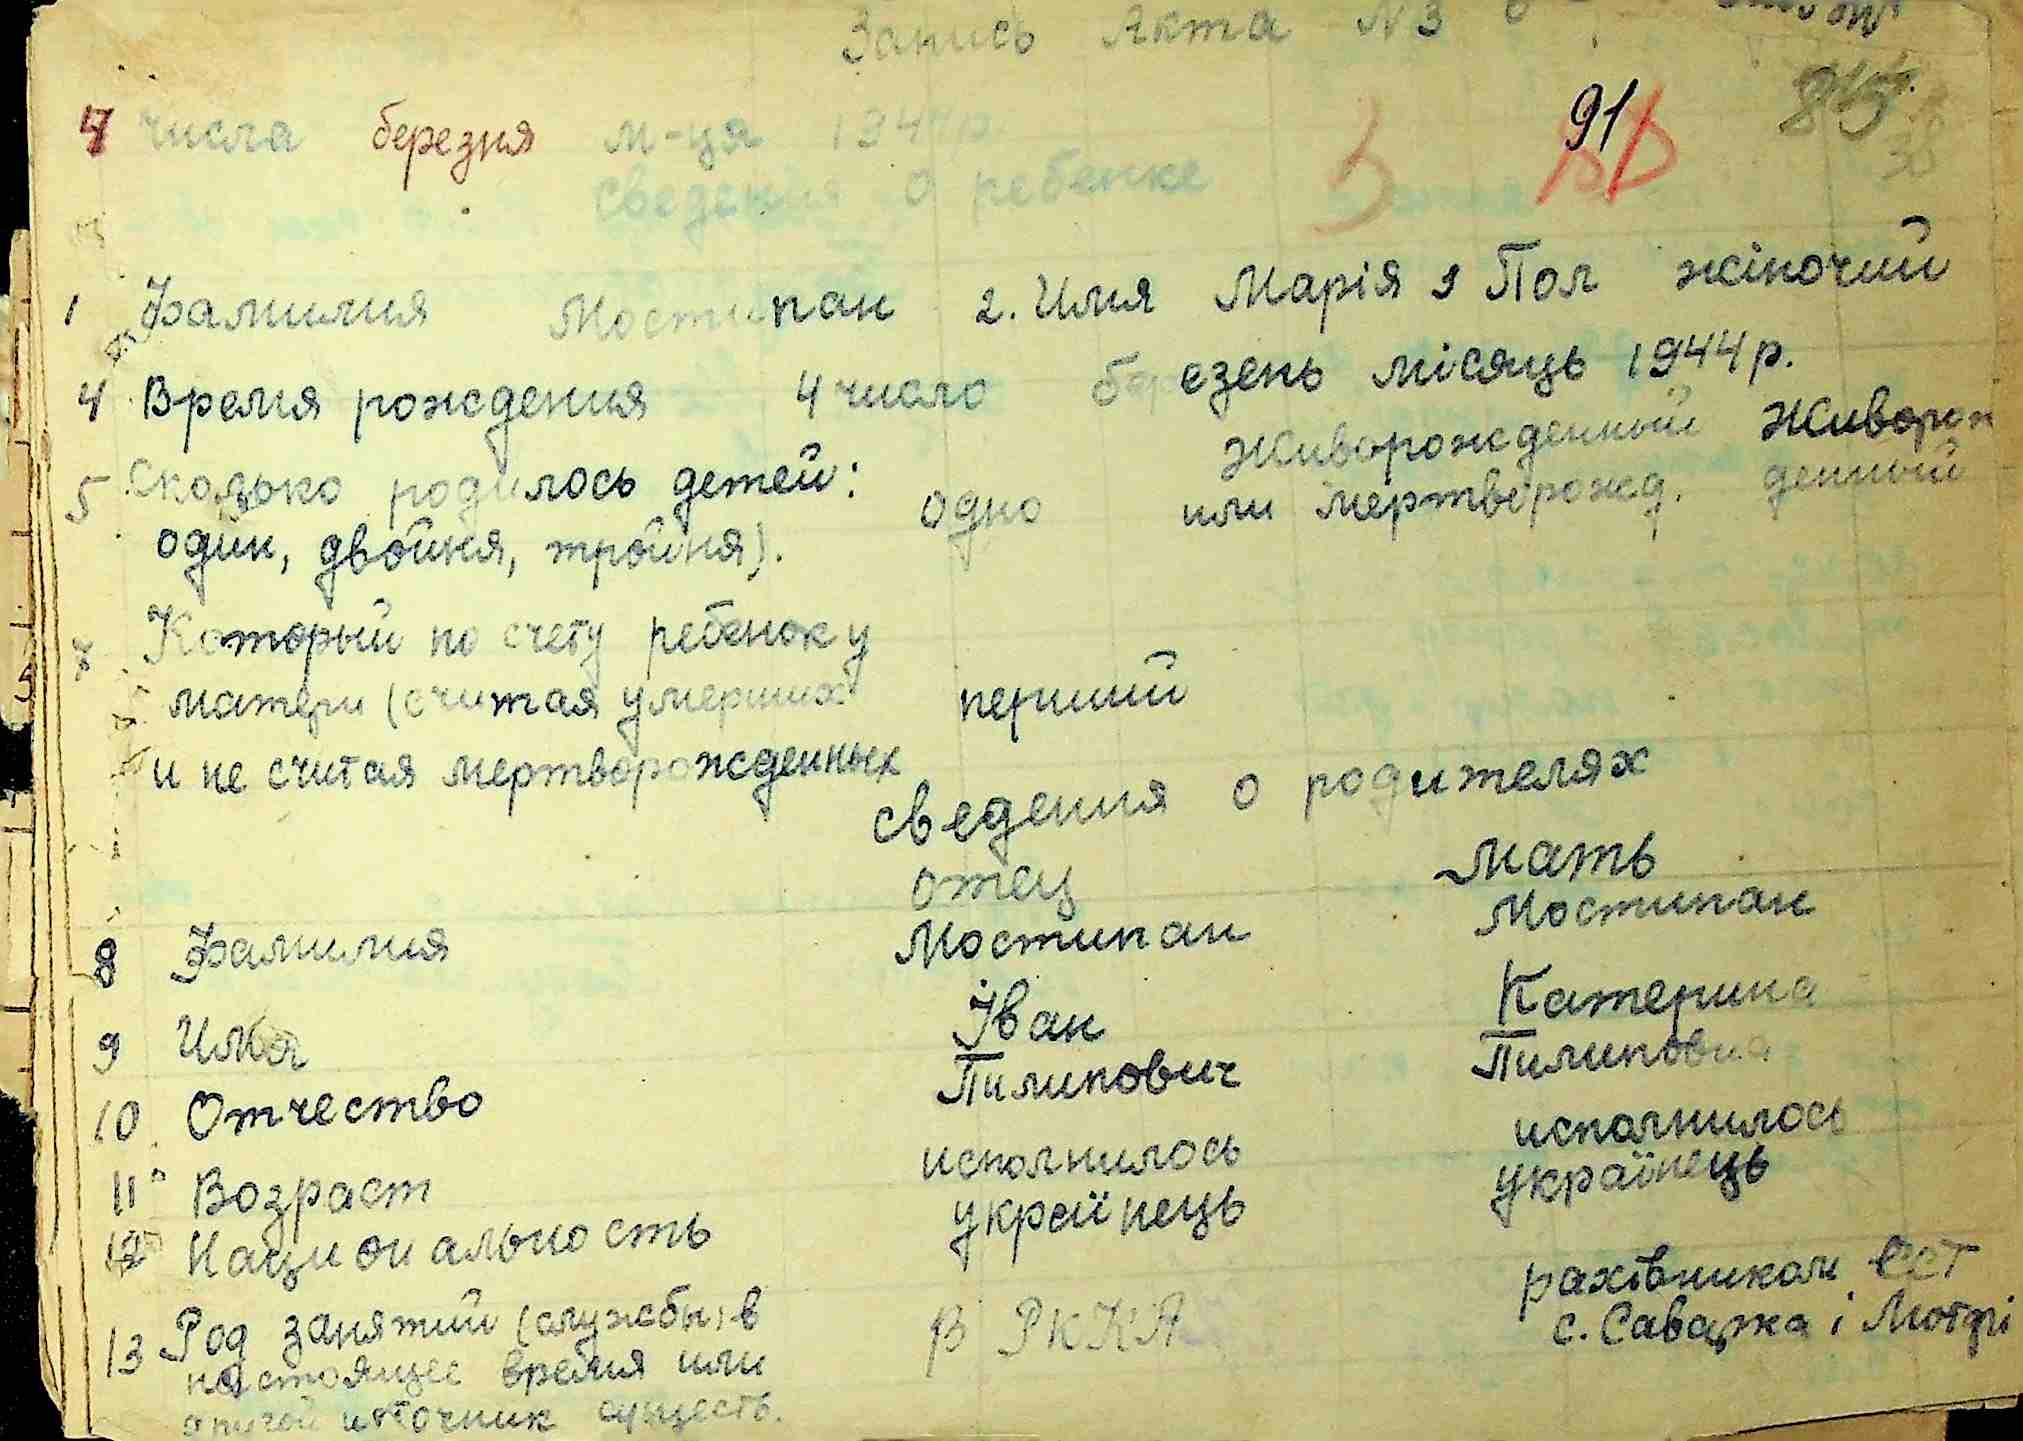 Запись Акта N3 о
91
числа березня м-ця 1944р.
сведения о ребенке
1 Фамилия Мостипан 2. Имя Марія 3 Пол жіночий
4 Время рождения 4 число березень місяць 1944 р.
5 Сколько родилось детей: одно Живорожденный Живорож
один, двойня, тройня). или мертворожд. денный
7 Который по счету ребенок у
матери (считая умерших перший
и не считая мертворожденных
сведения о родителях
отец мать
8 Фамилия Мостипан Мостипан
9 Имя Іван Катерина
10 Отчество Пилипович Пилиповна
11 Возраст исполнилось исполнилось
12 Национальность українець українець
13 Род занятий (службы) в В РККА рахівником ССТ
настоящее время или с. Саварка і
другой источник существ.